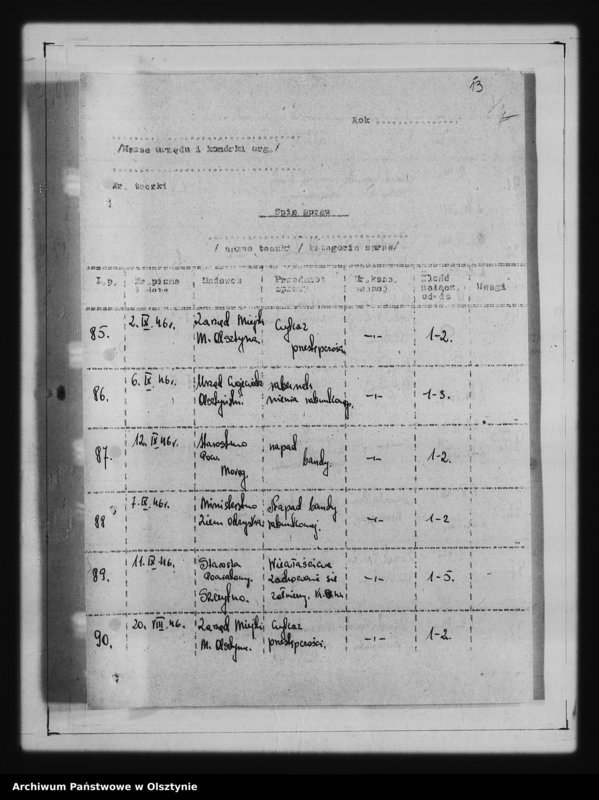 13
Rok ..................
/Nazwa urzędu i komórki org./
Nr. teczki
1
Spis spraw
/ nazwa teczki / kategoria spraw/
L.p. Nr. pisma i data Nadawca Przedmiot sprawy Ilość załącz. od-do Uwagi
85. 2. IX. 46 r. Zarząd Miejski M. Olsztyna. Wykaz przestępczości -"- 1-2.
86. 6. IX 46 r. Urząd Wojewódz. Olsztyński. rabunek mienia -"- 1-3.
87. 12. IX 46 r. Starostwo Pow. Morąg. napad bandy. -"- 1-2.
88 7. IX. 46 r. Ministerstwo Ziem Odzyska. Napad bandy rabunkowej. -"- 1-2
89. 11. IX 46. Starosta Powiatowy. Szczytno. Niewłaściwe zachowanie się żołnierzy. -"- 1-5.
90. 20. VIII. 46. Zarząd Miejski M. Olsztyn. Wykaz przestępczości. -"- 1-2.
Archiwum Państwowe w Olsztynie